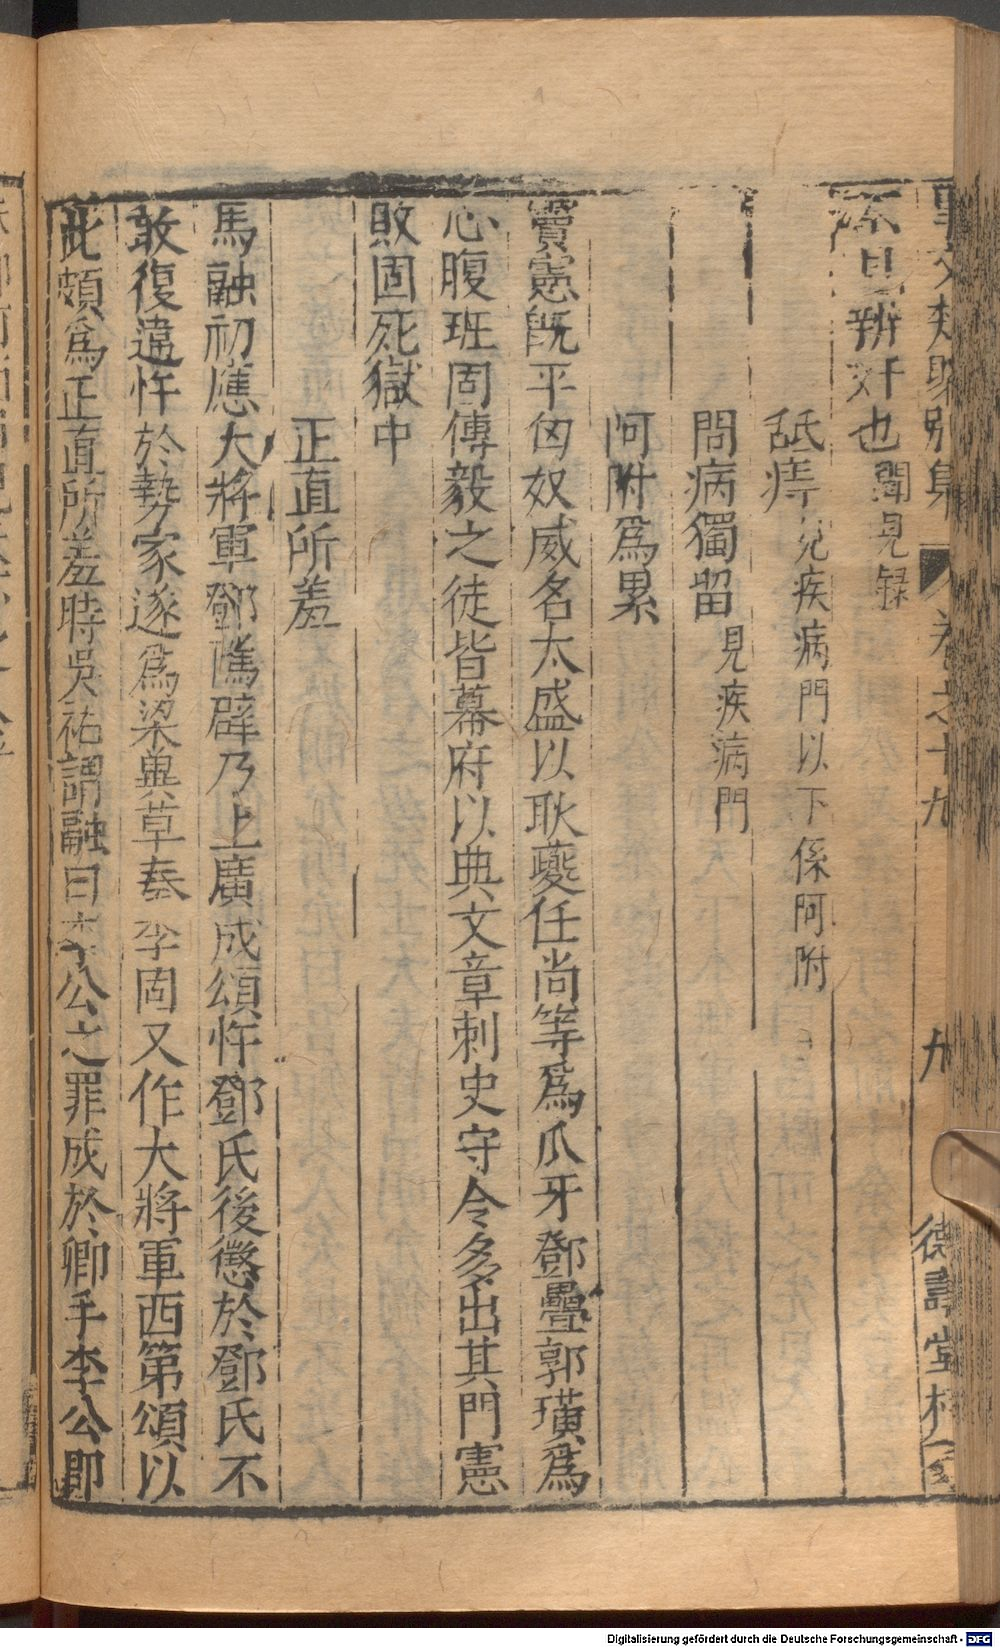 事文類聚別集 卷之十九 九 德壽堂梓
見辨奸也聞見録
舐痔見疾病門以下係阿附
問病獨留見疾病門
阿附爲累
竇憲旣平匈奴威名太盛以耿夔任尚等爲爪牙鄧疊郭璜爲
心腹班固傅毅之徒皆幕府以典文章刺史守令多出其門憲
敗固死獄中
正直所羞
馬融初應大將軍鄧隲辟乃上廣成頌忤鄧氏後懲於鄧氏不
敢復違忤於勢家遂爲梁兾草奏李固又作大將軍西第頌以
此頗爲正直所羞時吳祐謂融曰李公之罪成於卿手李公即
Digitalisierung gefördert durch die Deutsche Forschungsgemeinschaft - DFG